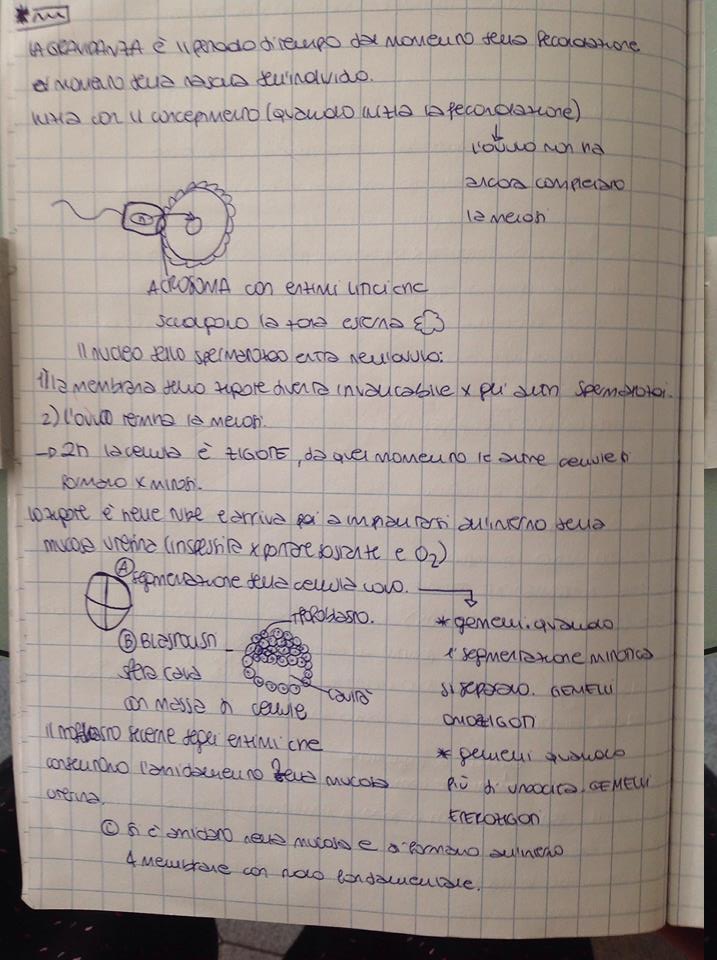 LA GRAVIDANZA è il periodo di tempo dal momento della fecondazione
al momento della nascita dell'individuo.
inizia con il concepimento (quando inizia la fecondazione)
l'ovulo non ha
ancora completato
la meiosi
ACROSOMA con enzimi litici che
sciolgono la zona esterna
Il nucleo dello spermatozoo entra nell'ovulo:
1) la membrana dello zigote diventa invalicabile x gli altri spermatozoi.
2) l'ovulo termina la meiosi.
→ 2n la cellula è ZIGOTE, da quel momento le altre cellule si
formano x mitosi.
lo zigote è nelle tube e arriva poi a impiantarsi all'interno della
mucosa uterina (inspessita x portare sostante e O2)
A segmentazione della cellula uovo.
* gemelli quando
TROFOBLASTO.
B Blastocisti
l'segmentazione mitotica
sfera cava
cavità
si separano. GEMELLI
con massa di cellule
OMOZIGOTI
il trofoblasto secerne degli enzimi che
* gemelli quando
consentono l'annidamento della mucosa
più di un oocita. GEMELLI
uterina.
ETEROZIGOTI
C Si è annidato nella mucosa e si formano all'interno
4 membrane con ruolo fondamentale.